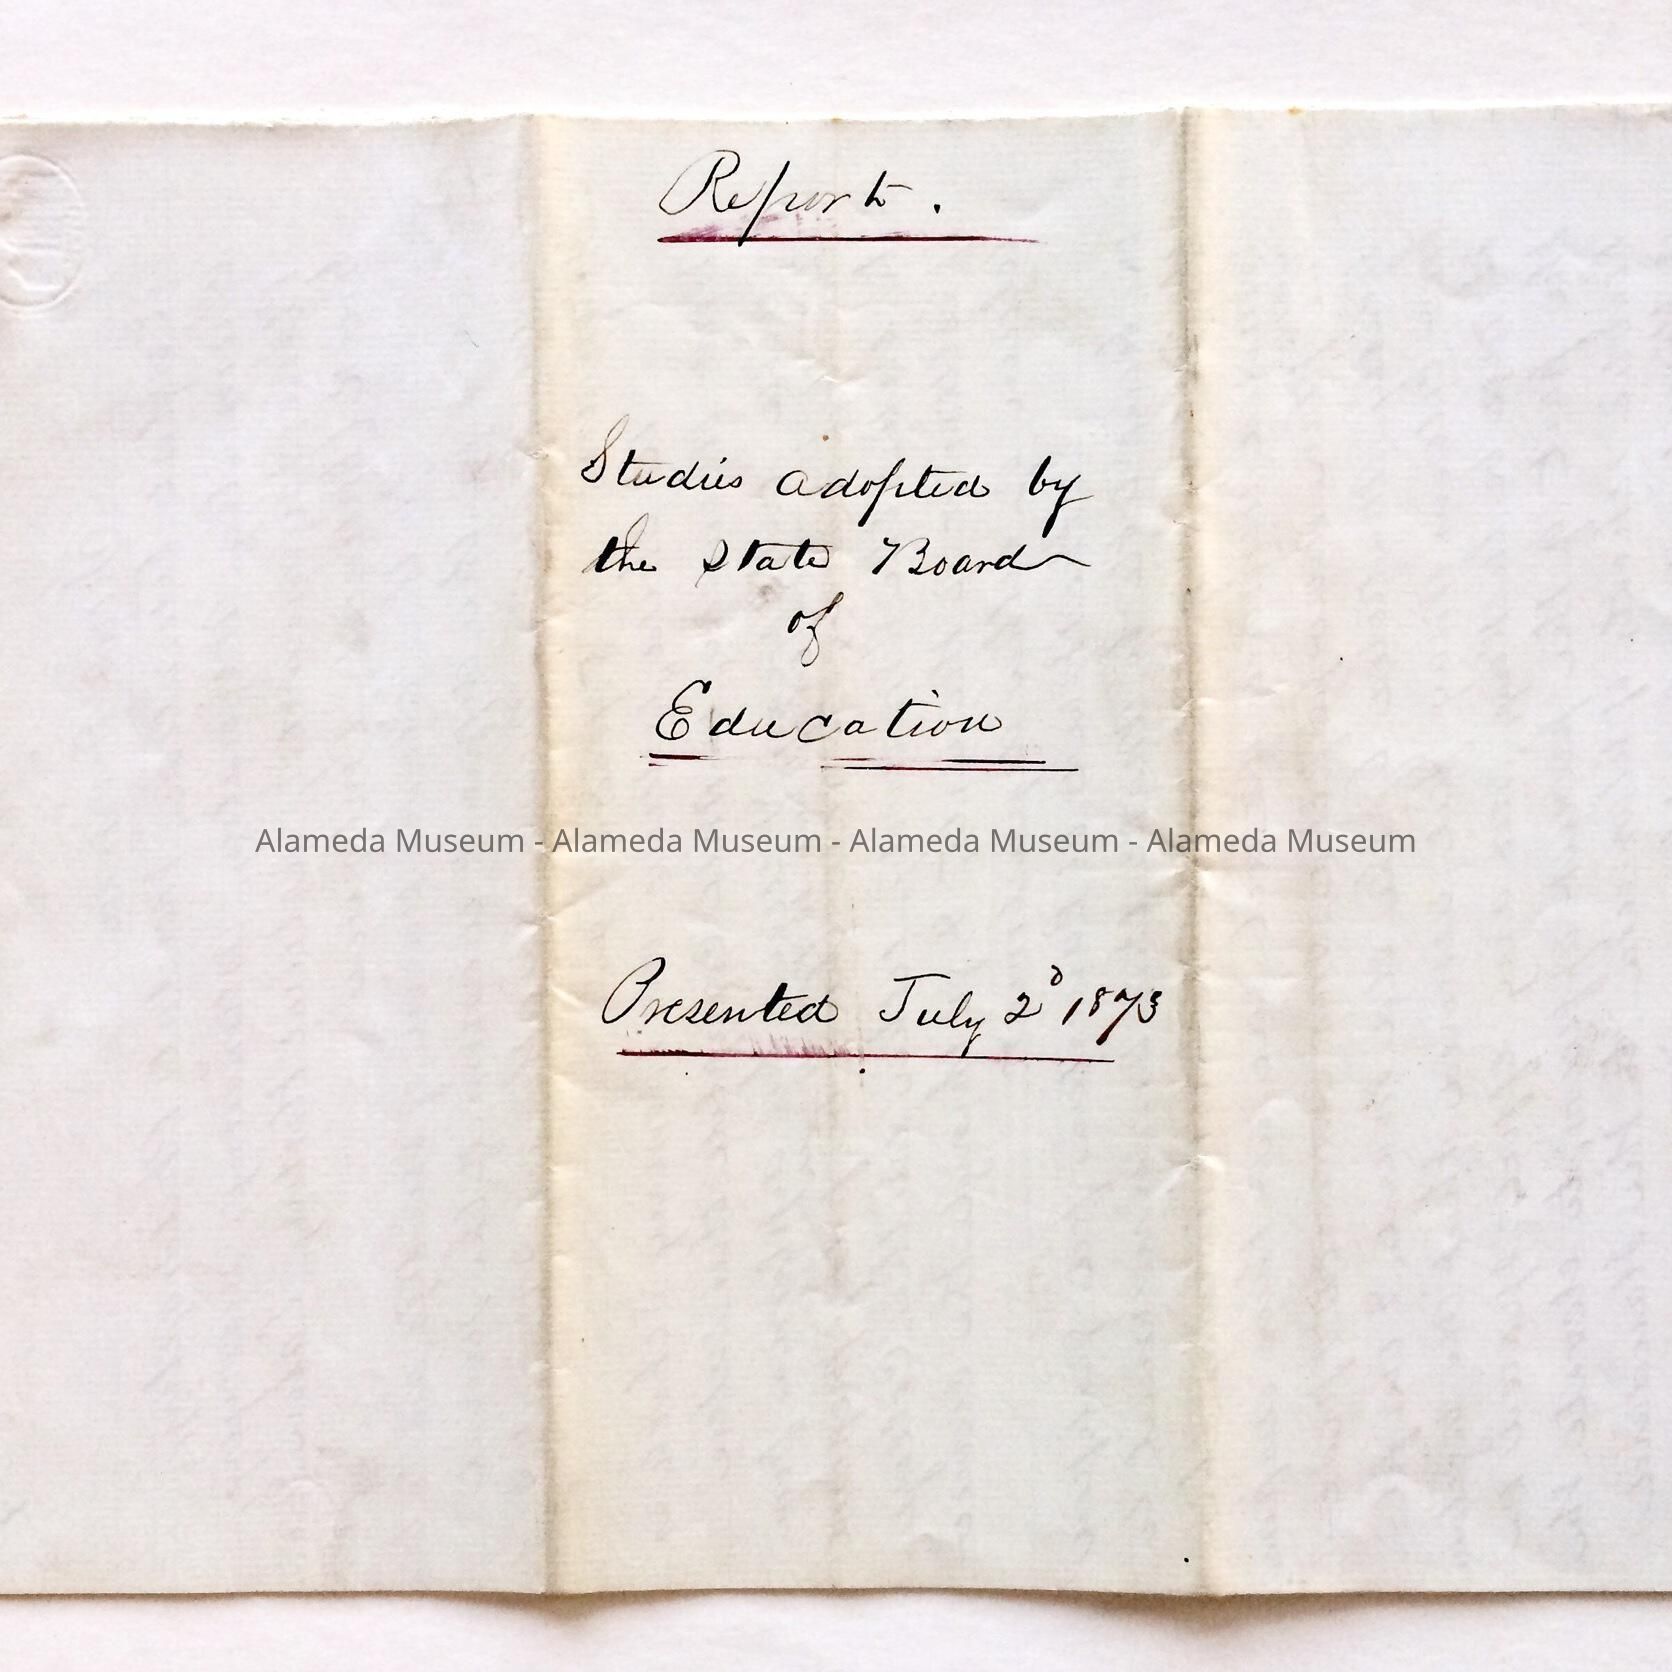 Report.
Studies adopted by
the State Board
of
Education
Alameda Museum - Alameda Museum - Alameda Museum - Alameda Museum
Presented July 2d 1873